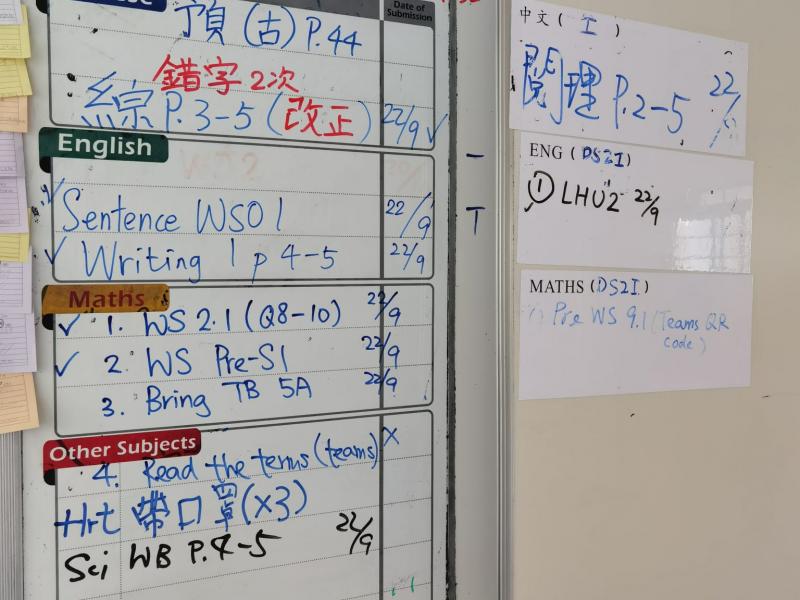 Date of Submission
預(古) P.44
錯字2次
綜 P.3-5 (改正) 22/9 ✓
English
✓ Sentence WS01 22/9
✓ Writing 1 p 4-5 22/9
Maths
✓ 1. WS 2.1 (Q8-10) 22/9
✓ 2. WS Pre-S1 22/9
3. Bring TB 5A 22/9
Other Subjects
4. Read the terms (teams) X
Hrt 帶口罩(x3)
Sci WB P.4-5 22/9
T
中文 ( I )
閱理 P.2-5 22/9
ENG (DS2I)
① LHU2 22/9
MATHS (DS2I)
Pre WS 9.1 (Teams QR
code)